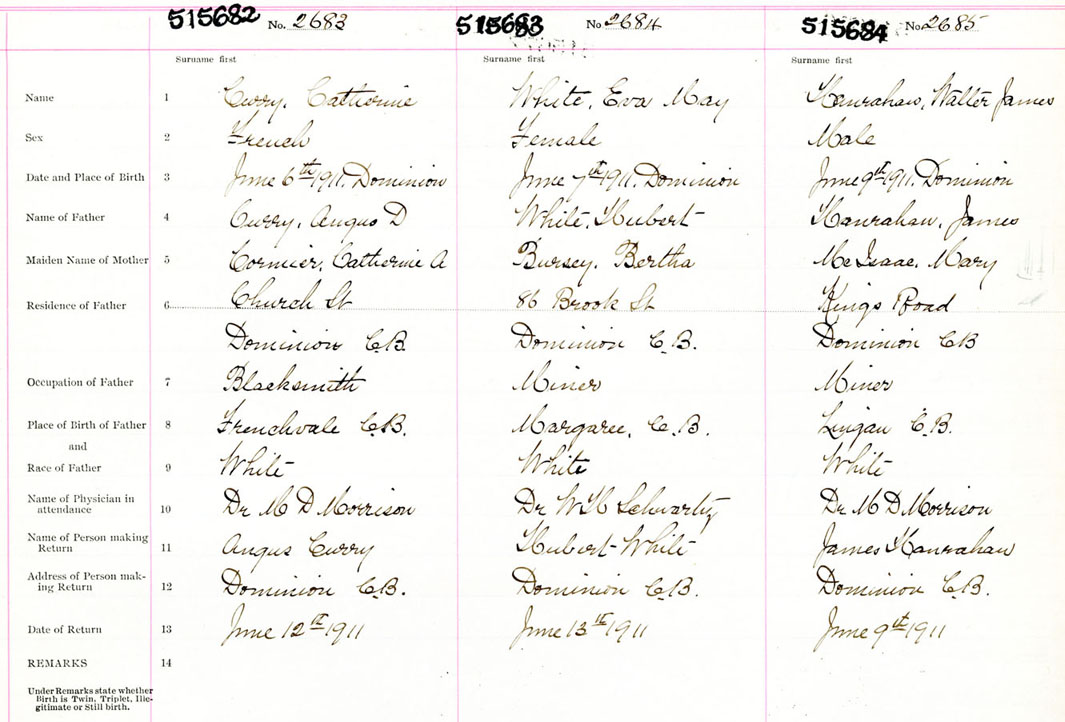 515682 No. 2683 515683 No 2684 515684 No. 2685
Surname first Surname first Surname first
Name 1 Curry, Catherine White, Eva May Hanrahan, Walter James
Sex 2 French Female Male
Date and Place of Birth 3 June 6th 1911. Dominion June 7th 1911. Dominion June 9th 1911. Dominion
Name of Father 4 Curry, Angus D White, Hubert Hanrahan, James
Maiden Name of Mother 5 Cormier, Catherine A Bursey, Bertha McIsaac, Mary
Residence of Father 6 Church St 86 Brook St Kings Road
Dominion C.B. Dominion C.B. Dominion CB
Occupation of Father 7 Blacksmith Miner Miner
Place of Birth of Father 8 Frenchvale C.B. Margaree, C.B. Lingan C.B.
and
Race of Father 9 White White White
Name of Physician in
attendance 10 Dr M D Morrison Dr W H Schwartz Dr M D Morrison
Name of Person making
Return 11 Angus Curry Hubert White James Hanrahan
Address of Person mak-
ing Return 12 Dominion C.B. Dominion C.B. Dominion C.B.
Date of Return 13 June 12th 1911 June 13th 1911 June 9th 1911
REMARKS 14
Under Remarks state whether
Birth is Twin, Triplet, Ille-
gitimate or Still birth.